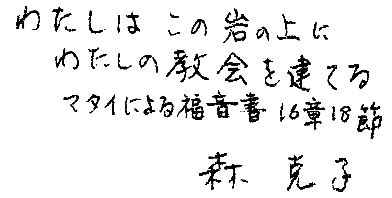 わたしは この岩の上に
わたしの教会を建てる
マタイによる福音書 16章18節
森 克子